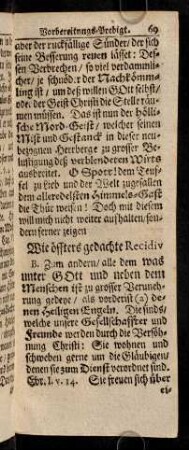 Vorbereitungs-Predigt. 69
aber der ruckfällige Sünder/ der sich
seine Besserung reuen lässet: Des-
sen Verbrechen/ so viel verdammli-
cher/ je schnöder der Nachkömm-
ling ist/ um deß willen GOtt selbst/
ode. der Geist Christi die Stelle räu-
men müssen. Das ist nun der höll-
ische Mord-Geist/ welcher seinen
Mist und Gestanck in dieser neu-
bezognen Herberge zu grosser Be-
lustigung deß verblendeten Wirts
ausbreitet. O Spott! dem Teuf-
fel zu Lieb und der Welt zugefallen
dem alleredelsten Himmels-Gast
die Thür weisen! Doch mit diesem
will mich nicht weiter aufhalten/ son-
dern ferner zeigen
Wie öffters gedachte Recidiv
B. Zum andern/ alle dem was
unter GOtt und neben dem
Menschen ist zu grosser Verunеh-
rung gedeye/ als vorderist (a) de-
nen Heiligen Engeln. Die sinds/
welche unsere Gesellschaffter und
Freunde werden durch die Versöh-
nung Christi: Sie wohnen und
schweben gerne um die Gläubigen/
denen sie zum Dienst verordnet sind.
Ebr. I. v. 14. Sie freuen sich über
ei-